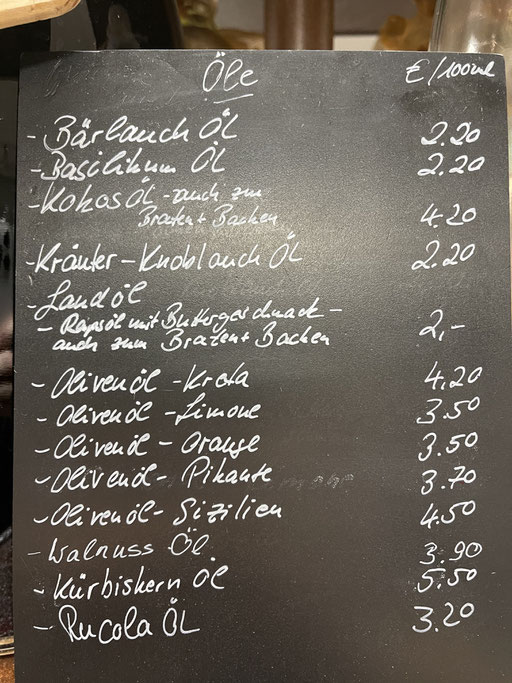 Öle €/100ml
- Bärlauch Öl 2.20
- Basilikum Öl 2.20
- Kokosöl - auch zum
Braten + Backen 4.20
- Kräuter - Knoblauch Öl 2.20
- Landöl
- Rapsöl mit Buttergeschmack -
auch zum Braten + Backen 2,-
- Olivenöl - Kreta 4.20
- Olivenöl - Limone 3.50
- Olivenöl - Orange 3.50
- Olivenöl - Pikante 3.70
- Olivenöl - Sizilien 4.50
- Walnuss Öl 3.90
- Kürbiskern Öl 5.50
- Rucola Öl 3.20